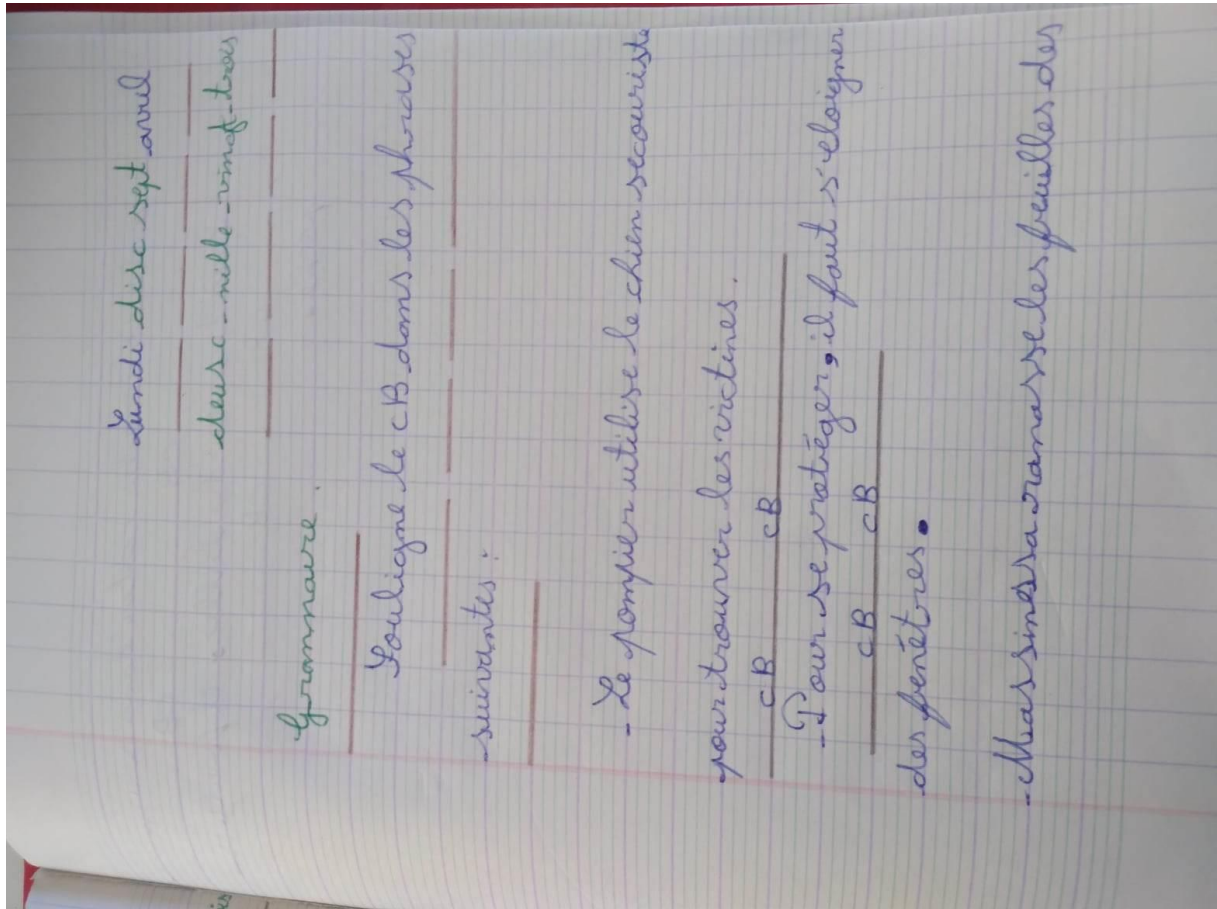 Lundi dix sept avril
deux-mille-vingt-trois
Grammaire.
Souligne le CB dans les phrases
suivantes :
- Le pompier utilise le chien secouriste
pour trouver les victimes.
CB CB
- Pour se protéger, il faut s'eloigner
CB CB
des fenêtres.
- Massinessa ramasse les feuilles des